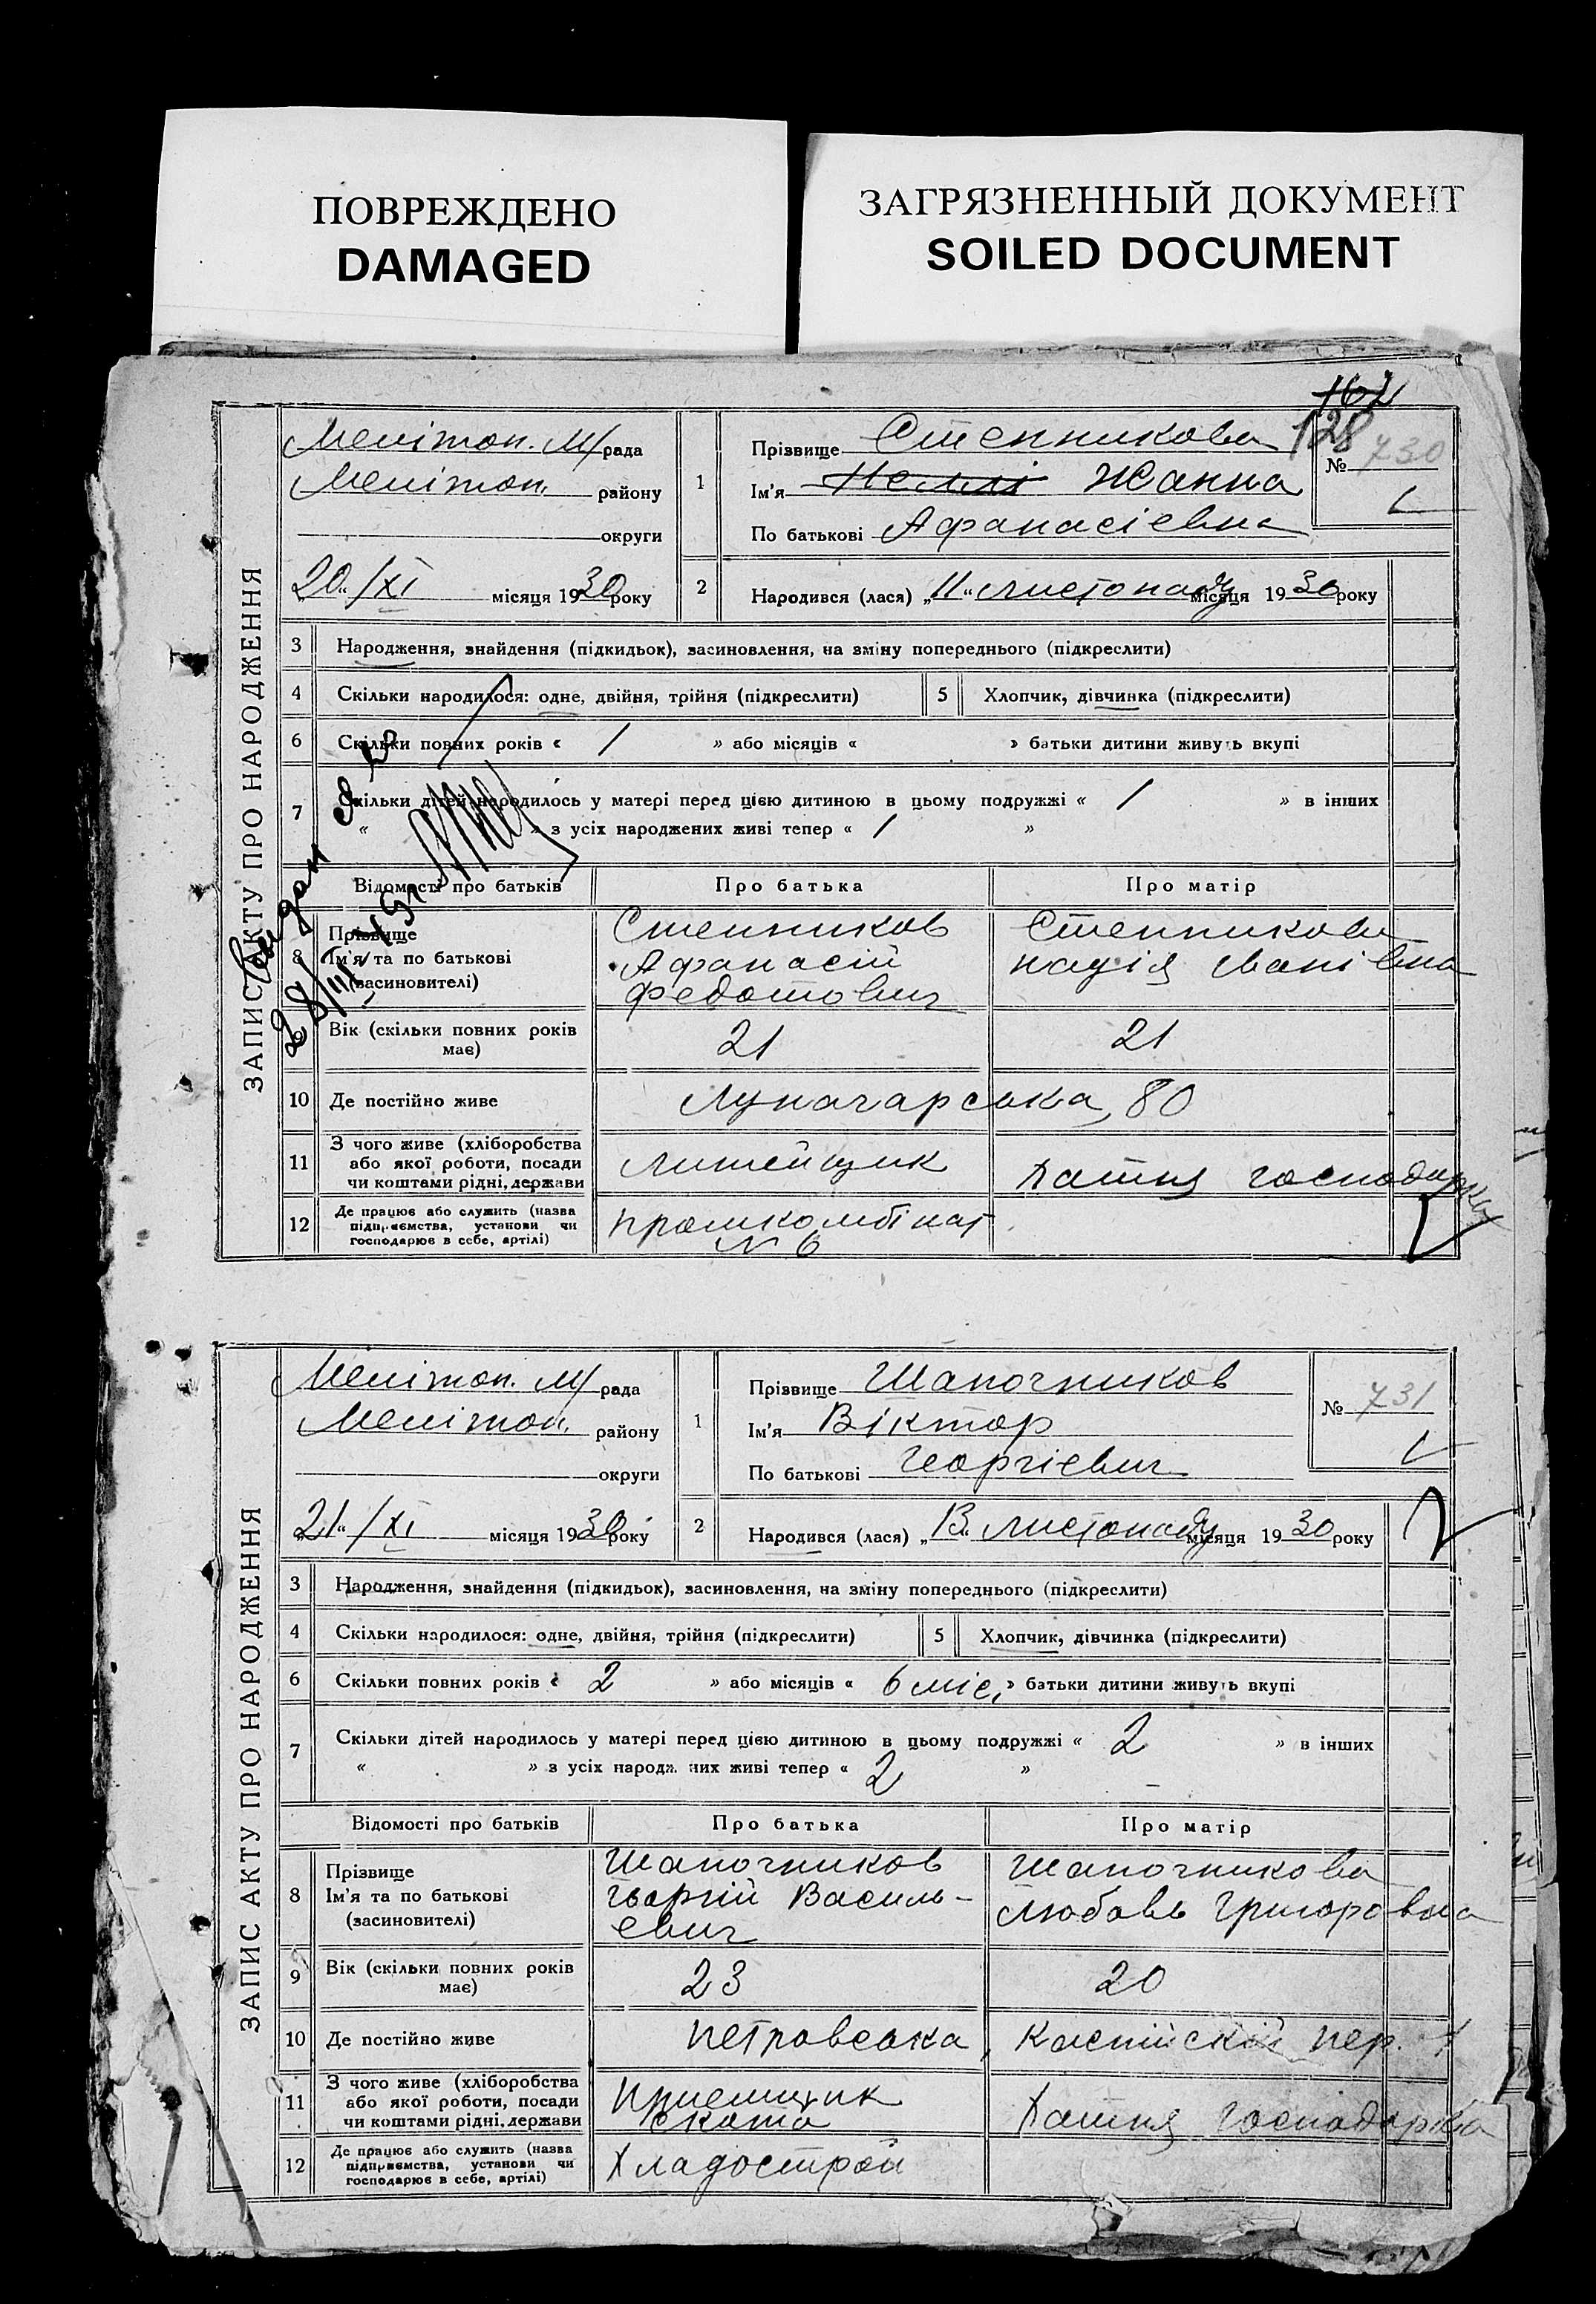 ПОВРЕЖДЕНО
DAMAGED
ЗАГРЯЗНЕННЫЙ ДОКУМЕНТ
SOILED DOCUMENT
162
128
ЗАПИС АКТУ ПРО НАРОДЖЕННЯ
Мелітоп. М/рада
Мелітоп. району
округи
„20“ /XI місяця 1930 року
1
Прізвище Стенникова
Ім'я Неллі Жанна
По батькові Афанасієвна
№ 730
2 Народився (лася) „11“ листопаду місяця 1930 року
3 Народження, знайдення (підкидьок), засиновлення, на зміну попереднього (підкреслити)
4 Скільки народилося: одне, двійня, трійня (підкреслити) 5 Хлопчик, дівчинка (підкреслити)
6 Скільки повних років « 1 » або місяців « » батьки дитини живуть вкупі
7 Скільки дітей народилось у матері перед цією дитиною в цьому подружжі « 1 » в інших
« » з усіх народжених живі тепер « 1 »
Відомості про батьків Про батька Про матір
8 Прізвище
Ім'я та по батькові
(засиновителі)
Стенников
Афанасій
Федотович
Стенникова
Надія Іванівна
Вік (скільки повних років
має) 21 21
10 Де постійно живе Луначарська, 80
11 З чого живе (хліборобства
або якої роботи, посади
чи коштами рідні, держави
Литейщик Хатня господарка
12 Де працює або служить (назва
підприємства, установи чи
господарює в себе, артілі)
Промкомбінат
№ 6
ЗАПИС АКТУ ПРО НАРОДЖЕННЯ
Мелітоп. М/рада
Мелітоп. району
округи
„21“ /XI місяця 1930 року
1
Прізвище Шапочников
Ім'я Віктор
По батькові Георгієвич
№ 731
2 Народився (лася) „13“ листопаду місяця 1930 року
3 Народження, знайдення (підкидьок), засиновлення, на зміну попереднього (підкреслити)
4 Скільки народилося: одне, двійня, трійня (підкреслити) 5 Хлопчик, дівчинка (підкреслити)
6 Скільки повних років « 2 » або місяців « 6 міс. » батьки дитини живуть вкупі
7 Скільки дітей народилось у матері перед цією дитиною в цьому подружжі « 2 » в інших
« » з усіх народжених живі тепер « 2 »
Відомості про батьків Про батька Про матір
8 Прізвище
Ім'я та по батькові
(засиновителі)
Шапочников
Георгій Василь-
евич
Шапочникова
Любовь Григоровна
9 Вік (скільки повних років
має) 23 20
10 Де постійно живе Петровська, Каспійскій пер.
11 З чого живе (хліборобства
або якої роботи, посади
чи коштами рідні, держави
Приемщик
скота
Хатня господарка
12 Де працює або служить (назва
підприємства, установи чи
господарює в себе, артілі)
Хладострой